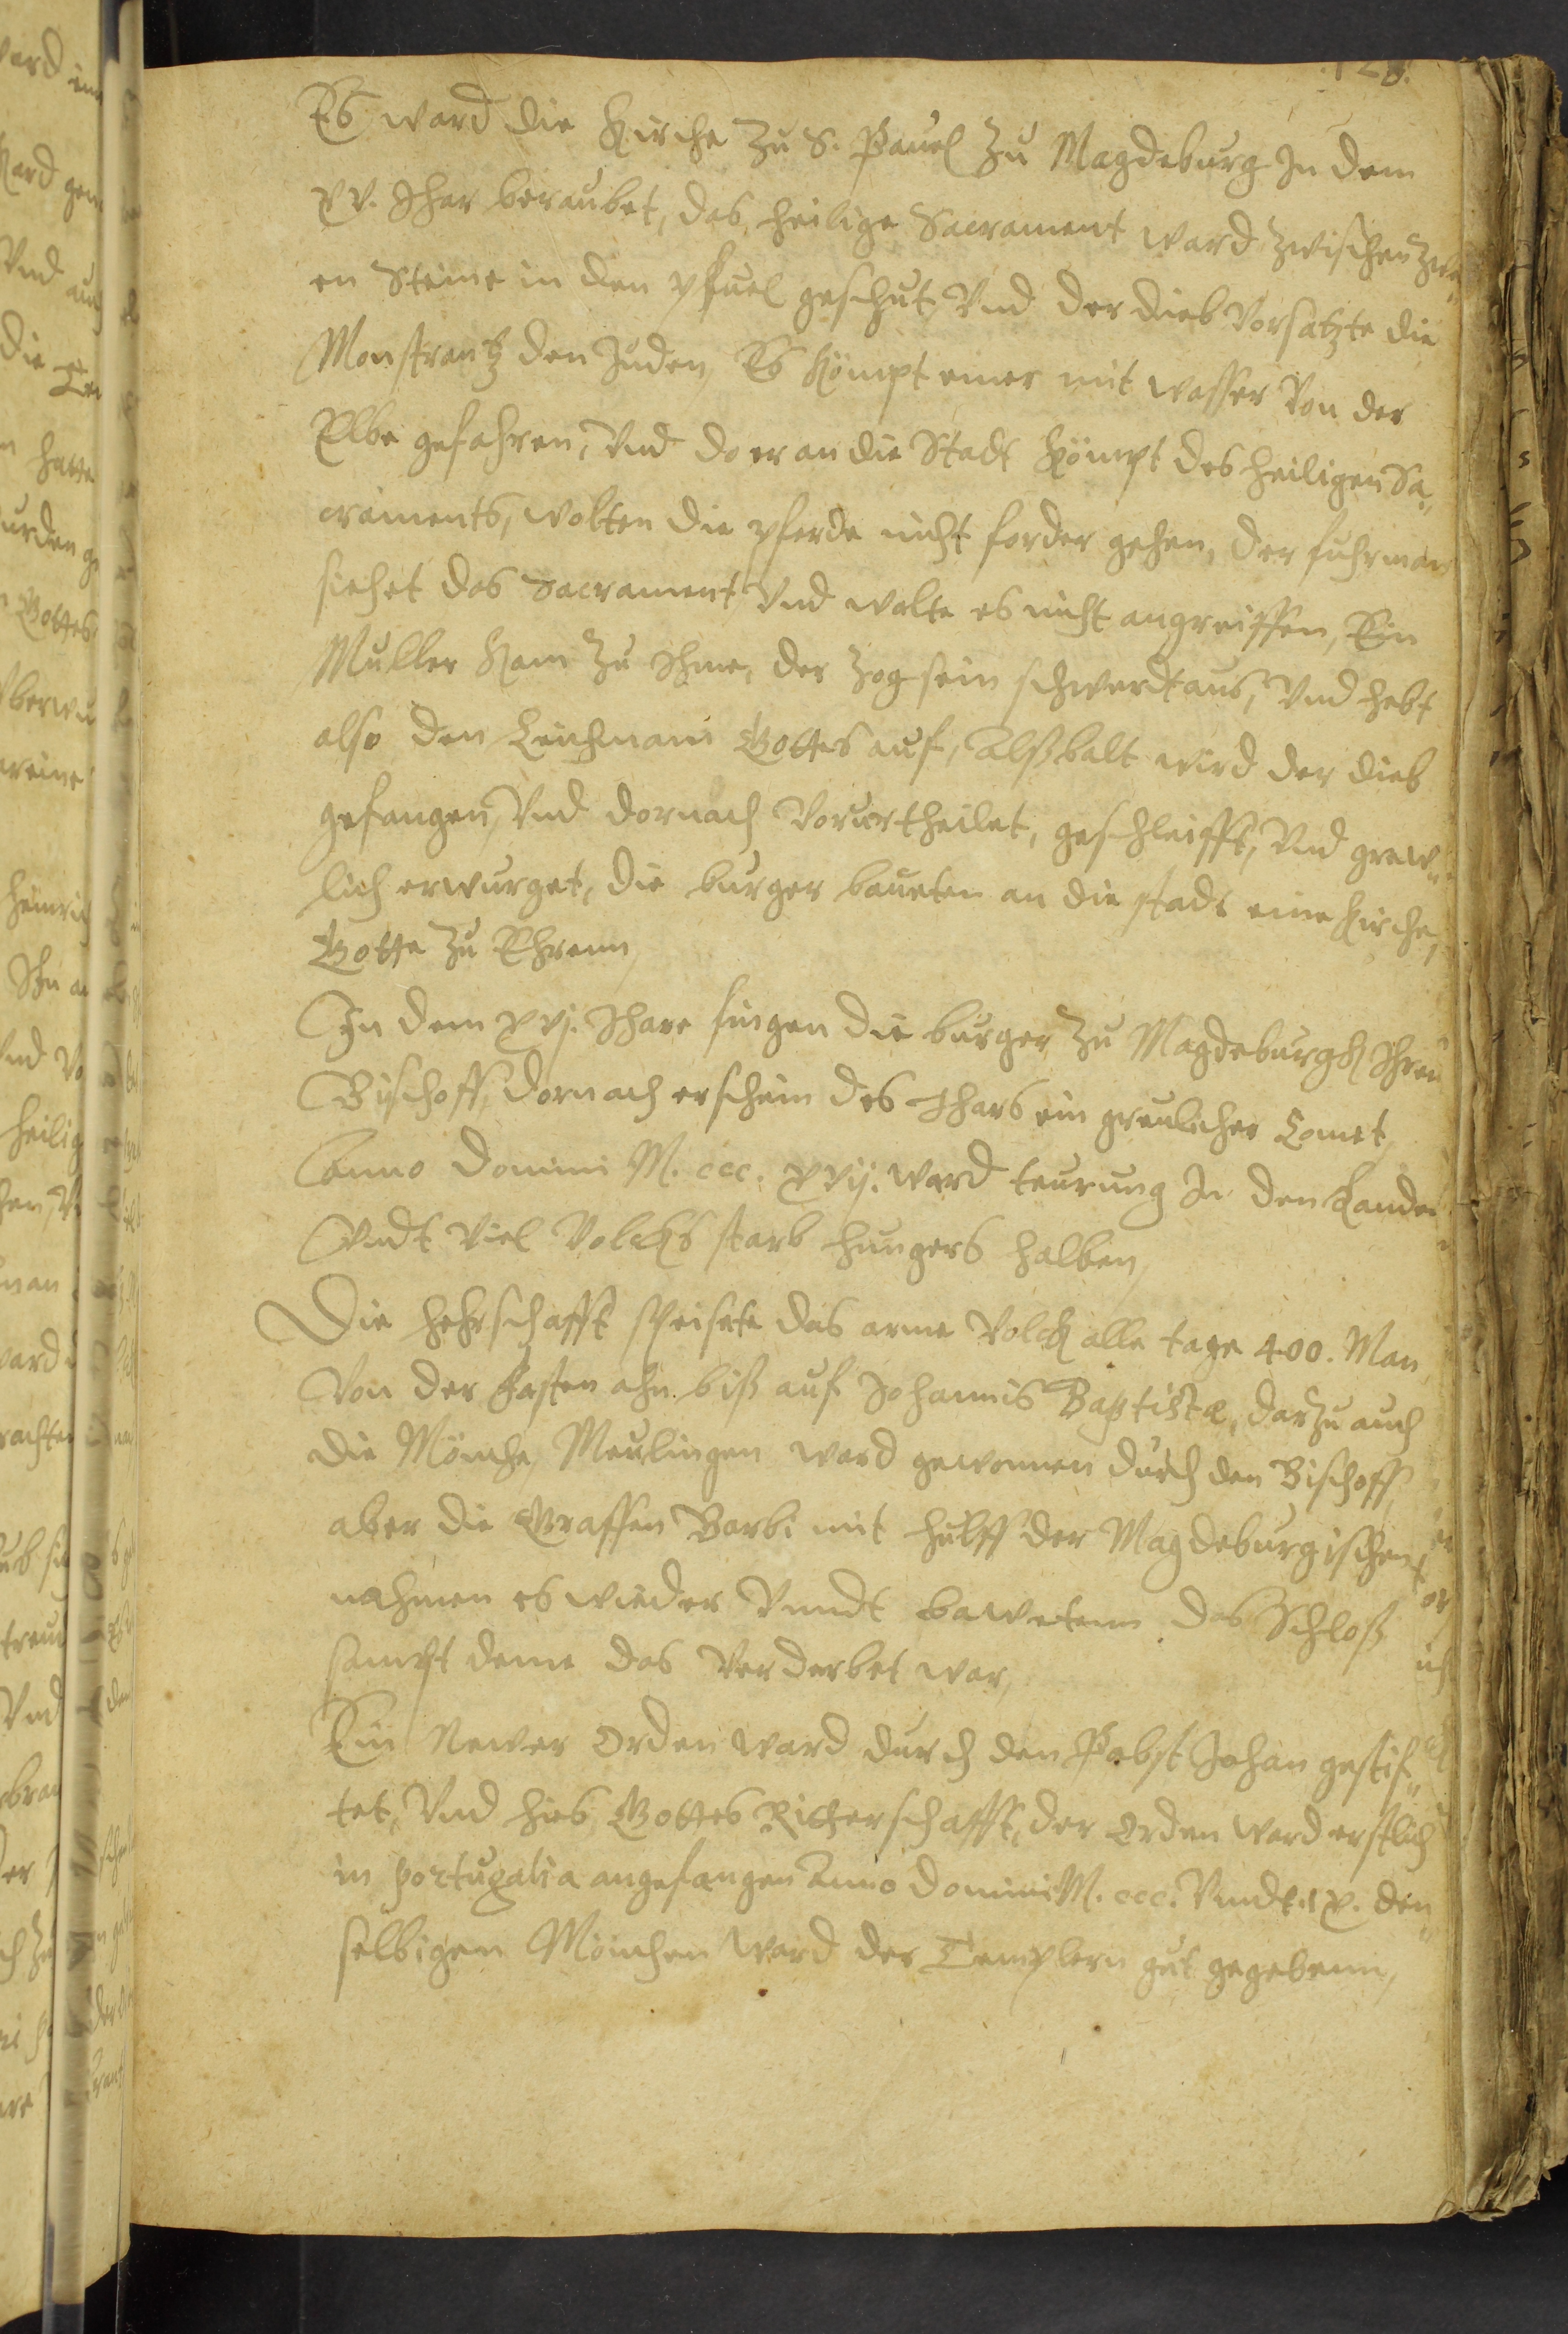 Es ward die Kirche zu S. Pauel zu Magdeburg In dem
xv. Jhar beraubet, das heilige Sacrament ward zwischen zwe„
en Steine in den pfuel geschut, Vnd der dieb Vorsatzte die
Monstrantz den Juden, Es kömpt einer mit wasser Von der
Elbe gefahren, Vnd do er an die Stadt kömpt des heiligen Sa„
craments, wolten die pferde nicht forder gehen, der fuhrman
siehet das Sacrament, Vnd wolte es nicht angreiffen, Ein
Muller kam zu Ihme, der zog sein schwerdt aus, Vnd hebt
also den Leichnam Gottes auf, Alßbalt wird der dieb
gefangen, Vnd dornach Vorurtheilet, geschleifft, Vnd grew„
lich erwurget, die burger baueten an die stadt eine Kirche,
Gotte zu Ehrenn,
In dem xvj. Jhare fingen die burger zu Magdeburgk Ihren
Bischoff, dornach erschein des Jhars ein greulicher Comet,
Anno Domini M. ccc. xvij. ward teurung In den Landen
Vndt Viel Volcks starb hungers halben,
Die hehrschafft speisete das arme Volck alle tage 400. Man
Von der Fasten ahn biß auf Johannis Baptistæ, darzu auch
die Mönche, Meulingen ward gewonnen durch den Bischoff,
aber die Graffen Barbi mit hulff der Magdeburgischen
nahmen es wieder Vnndt bawetenn das Schloß
sampt deme das Verderbet war,
Ein Newer Orden ward durch den Pabst Johan gestif„
tet, Vnd hies Gottes Ritterschafft, der Orden ward erstlich
in portugalia angefangen Anno Domini M. ccc. Vnndt xx. den„
selbigen Mönchen ward der Templern gut gegebenn,